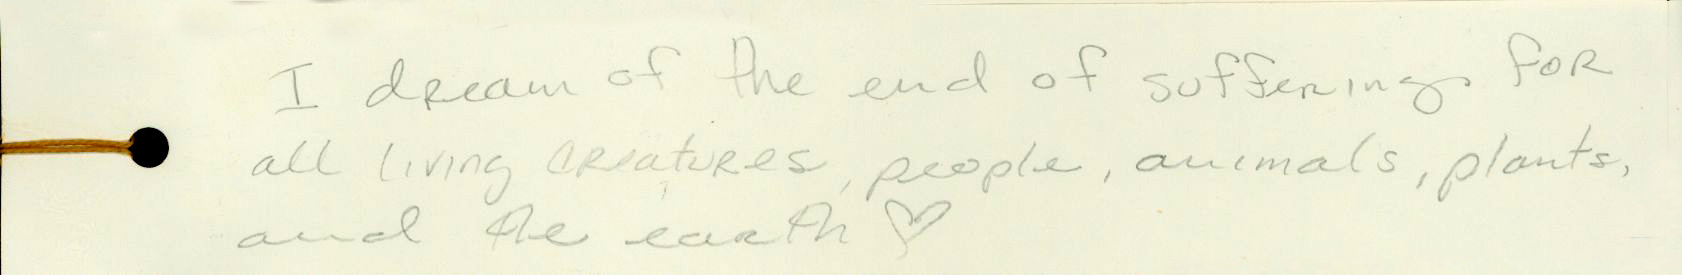 I dream of the end of suffering for
all living creatures, people, animals, plants,
and the earth ♡